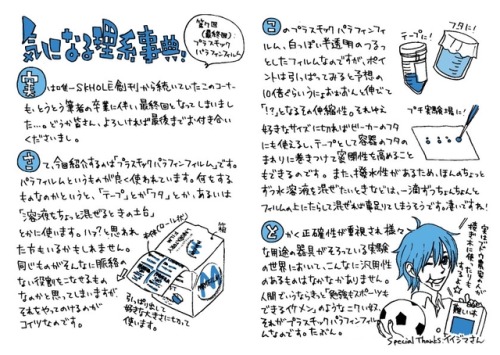 気になる理系事典!
第7回
(最終回)
プラスチック
パラフィンフィルム
実は唯一SKHOLE創刊から続いていたこのコーナー
も、とうとう筆者の卒業に伴い最終回となってしまいまし
た…。どうか皆さん、よろしければ最後までお付き合い
くださいまし。
さて、今回紹介するのは「プラスチックパラフィンフィルム」です。
パラフィルムというものが良く使われています。何をする
ものなのかというと、「テープ」とか「フタ」とか、あるいは
「溶液をちょっと混ぜるときの土台」
とかに使います。ハッ?と思われ
た方もいるかもしれません。
同じものがそんなに脈絡の
ない役割をこなせるもの
なのかと思ってしまいますが、
それをやってのけるのが
コイツなのです。
本体(ロール状)
箱
引っぱり出して
好きな大きさにちぎって
使います。
このプラスチックパラフィンフィ
ルム、白っぽい半透明のつるっ
としたフィルムなのですが、ポイ
ントは引っぱってみると予想の
10倍ぐらいによおおおんと伸びて
「!?」となるその伸縮性。それゆえ
好きなサイズにちぎればビーカーのフタ
にも使えるし、テープとして容器のフタの
まわりに巻きつけて密閉性を高めること
もできるのです。また、撥水性があるため、ほんのちょっと
ずつ水溶液を混ぜたいときなどは、一滴ずつちょんちょんと
フィルムの上にたらして混ぜれば事足りてしまうそうです。凄いですね!
テープに!
フタに!
プチ実験場に!
とかく正確性が重視され、様々
な用途の器具がそろっている実験
の世界において、こんなに汎用性
のあるものはなかなかありません。
人間でいうならきっと「勉強もスポーツも
できるイケメン」のようなニクいヤツ、
それがプラスチックパラフィンフィル
ムなのです。たぶん。
実はプロの農家さんが
接ぎ木に使ったりも
するよ☆
難しい本
Special Thanks イイジマさん